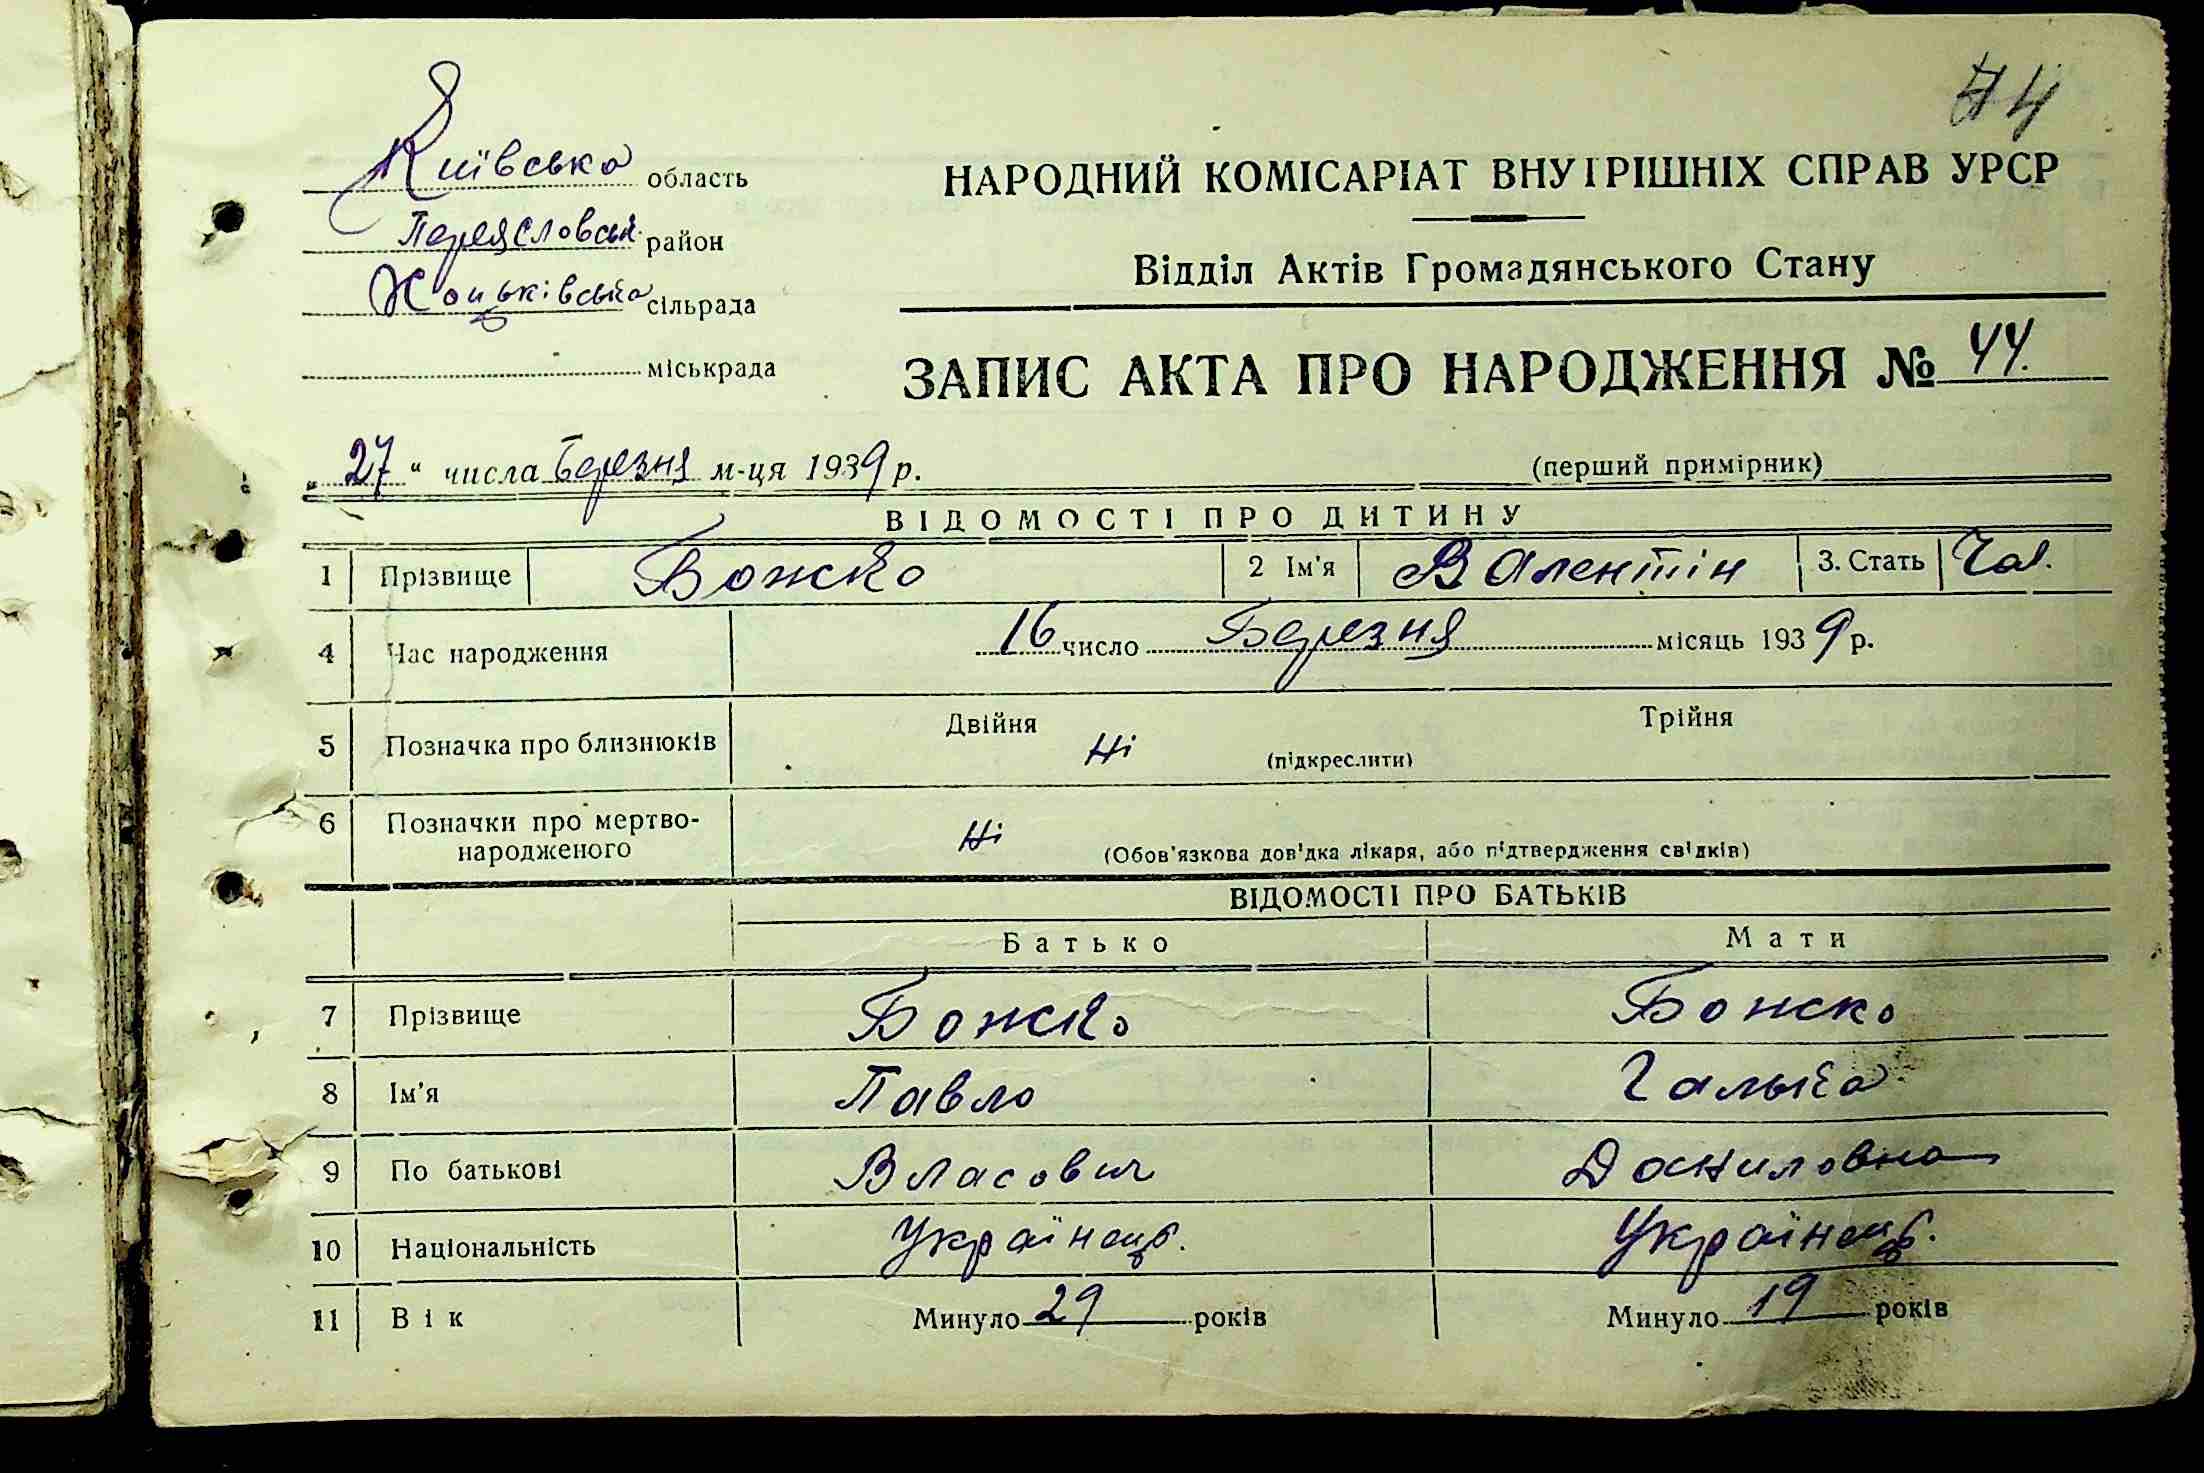 74
Київська область
Переяславськ. район
Хоцьківська сільрада
міськрада
НАРОДНИЙ КОМІСАРІАТ ВНУТРІШНІХ СПРАВ УРСР
Відділ Актів Громадянського Стану
ЗАПИС АКТА ПРО НАРОДЖЕННЯ № 44.
„27“ числа Березня м-ця 1939 р.
(перший примірник)
ВІДОМОСТІ ПРО ДИТИНУ
1 Прізвище Божко 2 Ім'я Валентін 3. Стать Чол.
4 Час народження 16 число Березня місяць 1939 р.
5 Позначка про близнюків Двійня Ні (підкреслити) Трійня
6 Позначки про мертво-
народженого Ні (Обов'язкова довідка лікаря, або підтвердження свідків)
ВІДОМОСТІ ПРО БАТЬКІВ
Батько Мати
7 Прізвище Божко Божко
8 Ім'я Павло Галька
9 По батькові Власович Даниловна
10 Національність Українець. Українець.
11 Вік Минуло 29 років Минуло 19 років